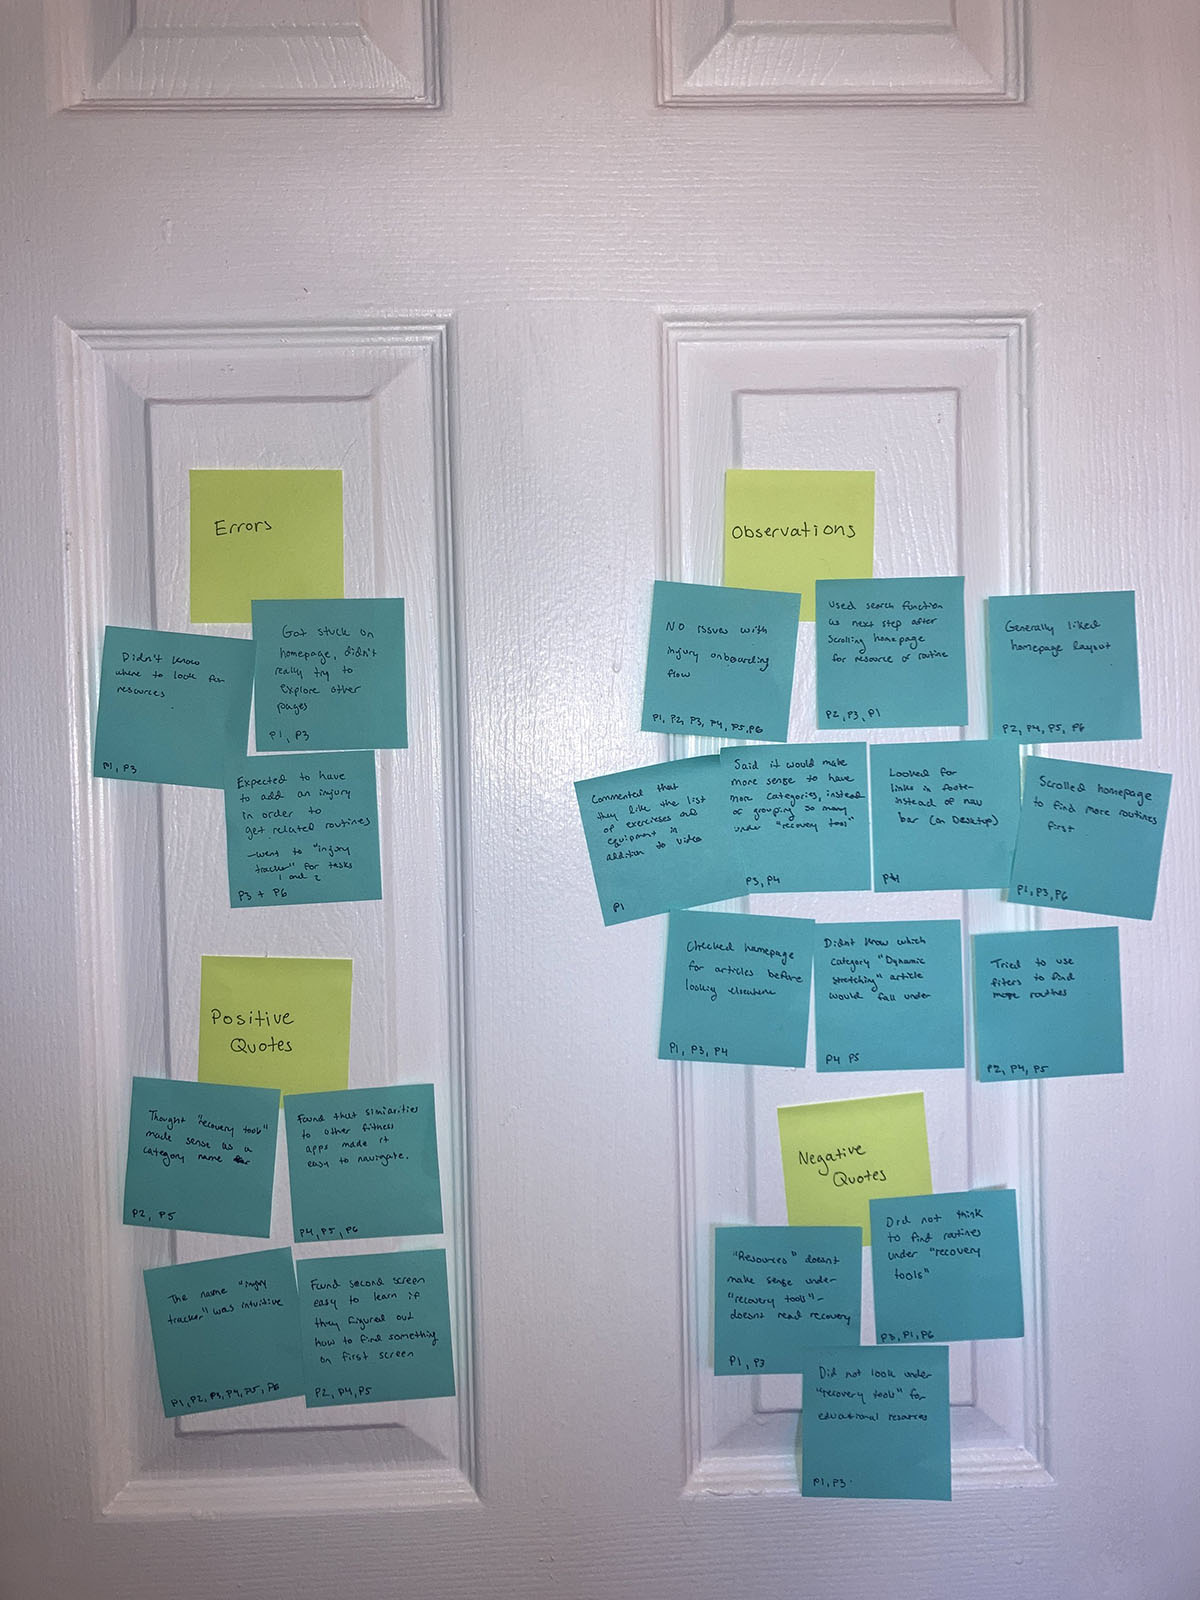 Errors
Didn't know
where to look for
resources
P1, P3
Got stuck on
homepage, didn't
really try to
explore other
pages
P1, P3
Expected to have
to add an injury
in order to
get related routines
-went to "injury
tracker" for tasks
1 and 2
P3 + P6
Positive
Quotes
Thought "recovery tools"
made sense as a
category name
P2, P5
Found that similarities
to other fitness
apps made it
easy to navigate.
P4, P5, P6
The name "injury
tracker" was intuitive
P1, P2, P3, P4, P5, P6
Found second screen
easy to learn if
they figured out
how to find something
on first screen
P2, P4, P5
Observations
No issues with
injury onboarding
flow
P1, P2, P3, P4, P5, P6
Used search function
as next step after
scrolling homepage
for resource or routine
P2, P3, P1
Generally liked
homepage layout
P2, P4, P5, P6
Commented that
they like the list
of exercises and
equipment in
addition to video
P1
Said it would make
more sense to have
more categories, instead
of grouping so many
under "recovery tool"
P3, P4
Looked for
links in footer
instead of nav
bar (on Desktop)
Scrolled homepage
to find more routines
first
P1, P3, P6
Checked homepage
for articles before
looking elsewhere
P1, P3, P4
Didnt know which
category "Dynamic
Stretching" article
would fall under
P4 P5
Tried to use
filters to find
more routines
P2, P4, P5
Negative
Quotes
"Resources" doesnt
make sense under
"recovery tools"-
doesnt read recovery
P1, P3
Did not think
to find routines
under "recovery
tools"
P3, P1, P6
Did not look under
"recovery tools" for
educational resources
P1, P3